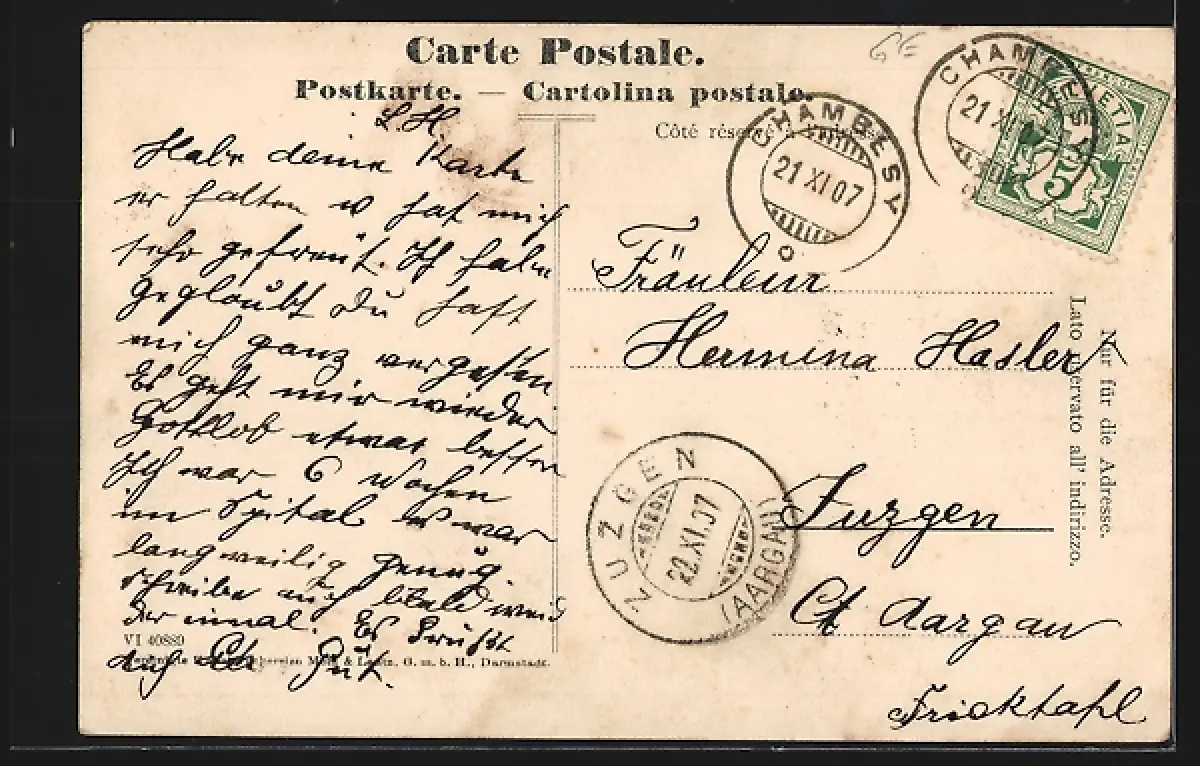 Carte Postale.
Postkarte. — Cartolina postale.
Côté réservé à
GE
L. H
Habe deine Karte
erhalten u hat mich
sehr gefreut. Ich habe
geglaubt du hast
mich ganz vergessen
Es geht mir wieder
Gottlob etwas besser
Ich war 6 Wochen
im Spital es war
langweilig genug.
schreibe auch bald wie
der einmal. Es Grüßt
auch Gut.
VI 40880
& G. m. b. H., Darmstadt.
CHAMBESY
21 XI 07
CHAMBESY
21 X
HELVETIA
5
Fräulein
Hermina Hasler
Zuzgen
Ct Aargau
Fricktahl
ZUZGEN
22.XI.07
(AARGAU)
Nur für die Adresse.
Lato riservato all' indirizzo.